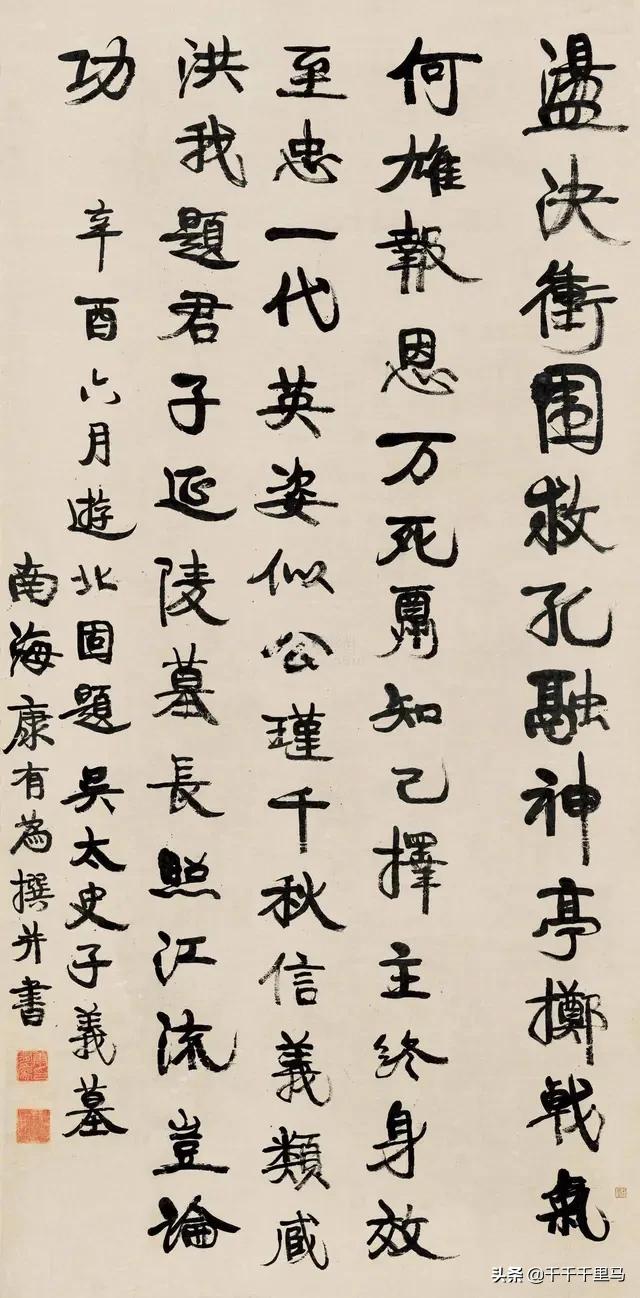 盪决衝圍救孔融神亭擲戟氣
何雄報恩万死知己擇主終身效
至忠一代英姿似公瑾千秋信義類臧
洪我題君子延陵墓長照江流豈論
功
辛酉六月遊北固題吳太史子義墓
南海康有為撰并書
头条 @千千千里马